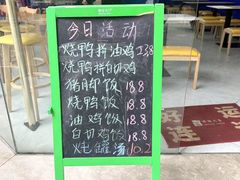 今日活动
烧鸭拼油鸡 23.8
烧鸭拼白切鸡
猪脚饭 18.8
烧鸭饭 18.8
油鸡饭 18.8
白切鸡饭 18.8
炖罐汤 10.2